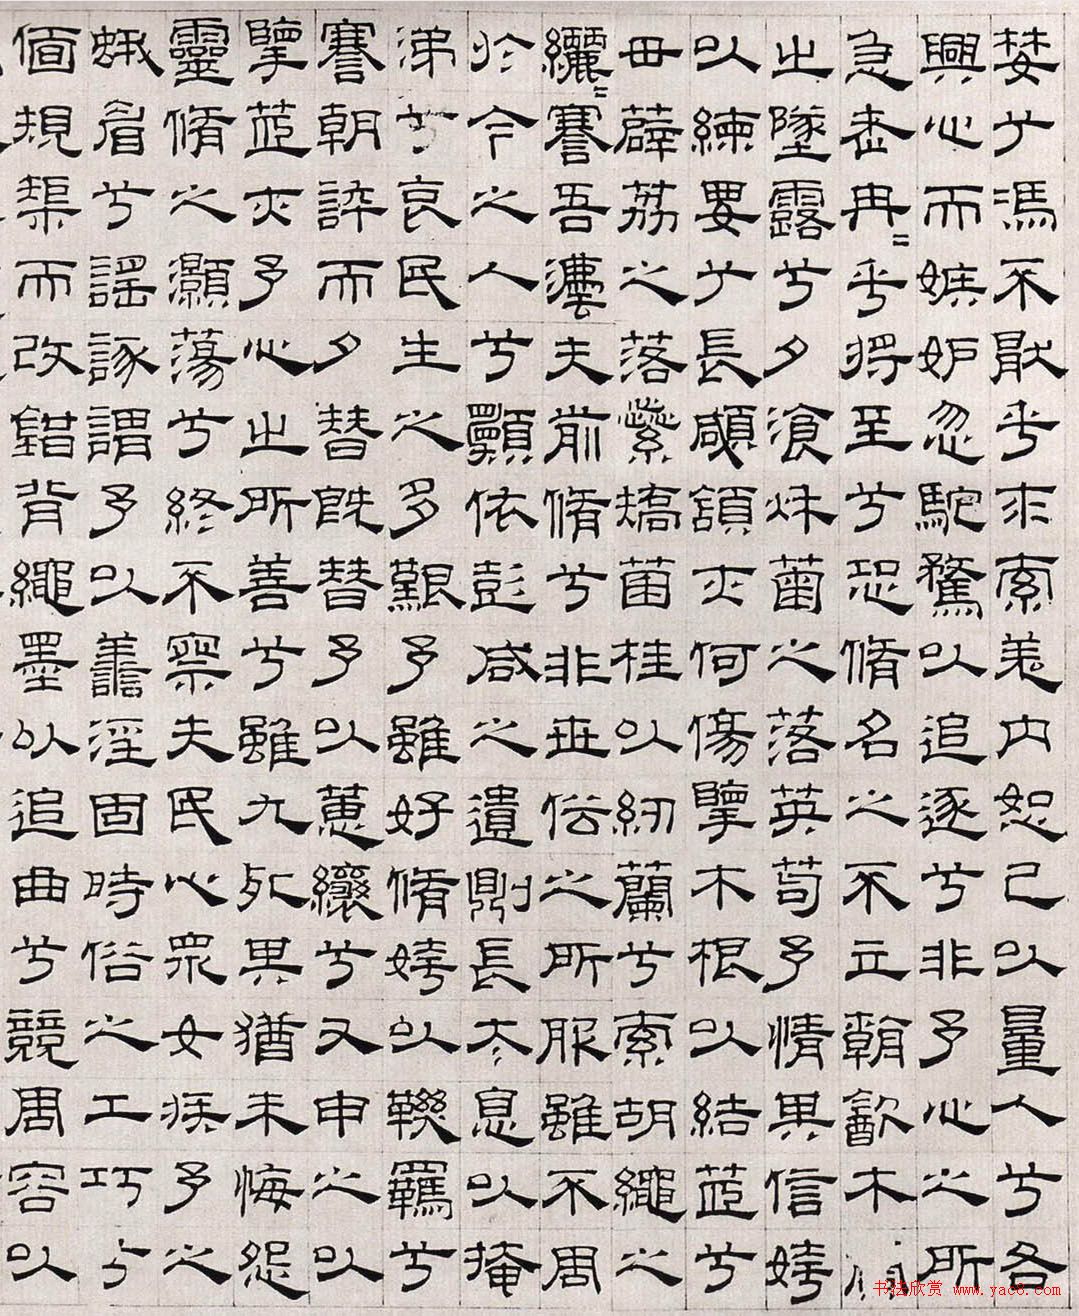 婪兮馮不猒乎求索羌内恕己以量人兮各
興心而嫉妒忽駝騖以追逐兮非予心之所
急老冉=乎將至兮恐脩名之不立朝飲木
之墜露兮夕湌秋菊之落英苟予情其信姱
以練要兮長顑頷亦何傷擥木根以結茝兮
毌薜荔之落蘂矯菌桂以紉蘭兮索胡繩之
纚=謇吾灋夫前脩兮非世俗之所服雖不周
於今之人兮顠依彭咸之遺則長太息以掩
涕兮哀民生之多艱予雖好脩姱以鞿羈兮
謇朝誶而夕替既替予以蕙纕兮又申之以
擥茝亦予心之所善兮雖九死其猶未悔怨
靈脩之灝蕩兮終不察夫民心衆女疾予之
蛾眉兮謠諑謂予以譱淫固時俗之工巧兮
偭規榘而改錯背繩墨以追曲兮競周容以
书法欣赏 www.yac8.com